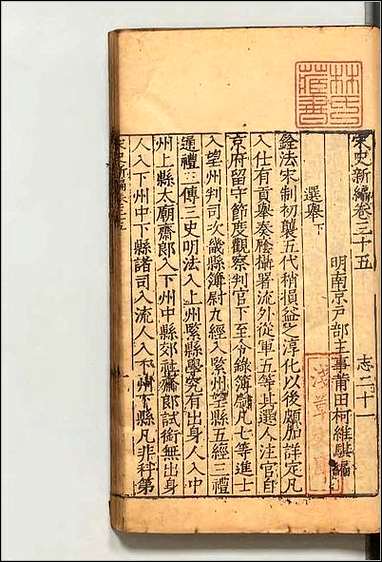 宋史新編卷三十五
志二十一
明南京戶部主事莆田柯維騏編
選舉下
銓法宋制初襲五代稍損益之淳化以後頗加詳定凡
入仕有貢舉奏廕攝署流外從軍五等其選人注官自
京府留守節度觀察判官下至令錄簿尉凡七等進士
入望州判司次畿縣簿尉九經入緊州望縣五經三禮
通禮三傳三史明法入上州緊縣學究有出身人入中
州上縣太廟齋郎入下州中下縣郊社齋郎試銜無出身
人入下州中下縣諸司入流人入下州下縣凡非科第
宋史新編卷三十五
一
林氏藏書
淺草文庫